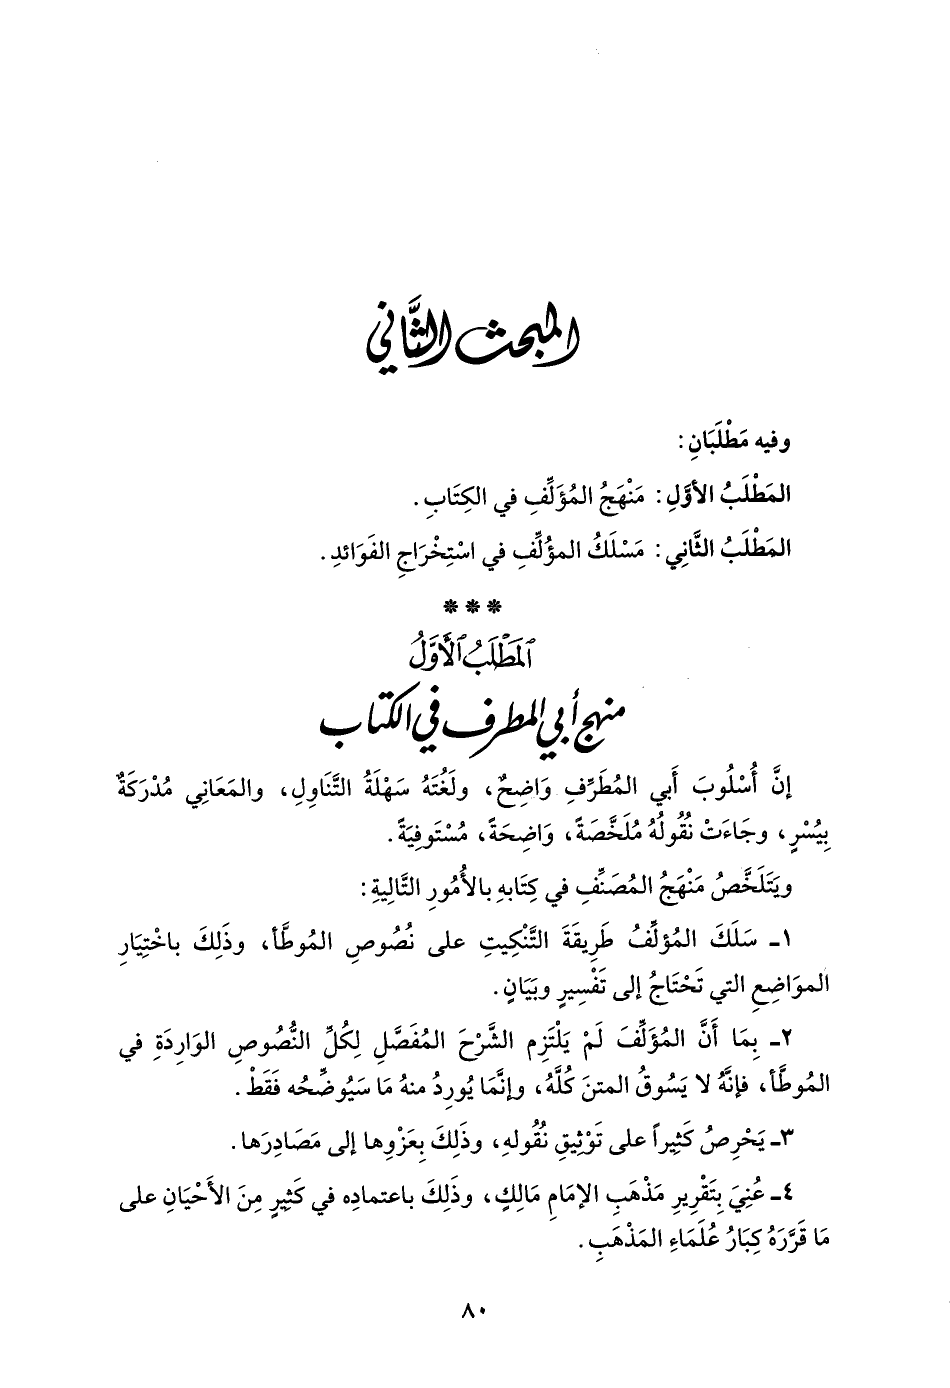 المبحث الثَّاني
وفيه مَطْلَبَانِ :
المَطْلَبُ الأوَّلِ : مَنْهَجُ المُؤَلِّفِ في الكِتَابِ .
المَطْلَبُ الثَّانِي : مَسْلَكُ المؤلِّفِ في اسْتِخْرَاجِ الفَوَائدِ .
***
ٱلمَطْلَبُ ٱلأَوَّلُ
منهج أبي المطرف في الكتاب
إنَّ أُسْلُوبَ أَبي المُطَرِّفِ وَاضِحٌ، ولُغَتَهُ سَهْلَةُ التَّنَاوِلِ، والمَعَانِي مُدْرَكَةٌ
بِيُسْرٍ، وجَاءَتْ نُقُولُهُ مُلَخَّصَةً، وَاضِحَةً، مُسْتَوفِيَةً.
ويَتَلَخَّصُ مَنْهَجُ المُصَنِّفِ في كِتَابهِ بالأُمُورِ التَّالِيةِ :
١ـ سَلَكَ المُؤلِّفُ طَرِيقَةَ التَّنْكِيتِ على نُصُوصِ الموطَّأ، وذَلِكَ باخْتِيَارِ
الموَاضِعِ التي تَحْتَاجُ إلى تَفْسِيرٍ وبَيَانٍ.
٢ـ بِمَا أَنَّ المُؤَلِّفَ لَمْ يَلْتَزِم الشَّرْحَ المُفَصَّلِ لِكُلِّ النُّصُوصِ الوَارِدَةِ في
المُوطَّأ، فإنَّهُ لا يَسُوقُ المتنَ كُلَّهُ، وإنَّمَا يُورِدُ منهُ مَا سَيُوضِّحُه فَقَطْ.
٣ـ يَحْرِصُ كَثِيراً على تَوْثِيقِ نُقُولهِ، وذَلِكَ بِعَزْوِها إلى مَصَادِرَها.
٤ـ عُنِيَ بِتَقْرِيرِ مَذْهَبِ الإمَامِ مَالِكٍ، وذَلِكَ باعتمادِه في كَثِيرٍ مِنَ الأَحْيَانِ على
مَا قَرَّرَهُ كِبَارُ عُلَمَاءِ المَذْهَبِ.
٨٠